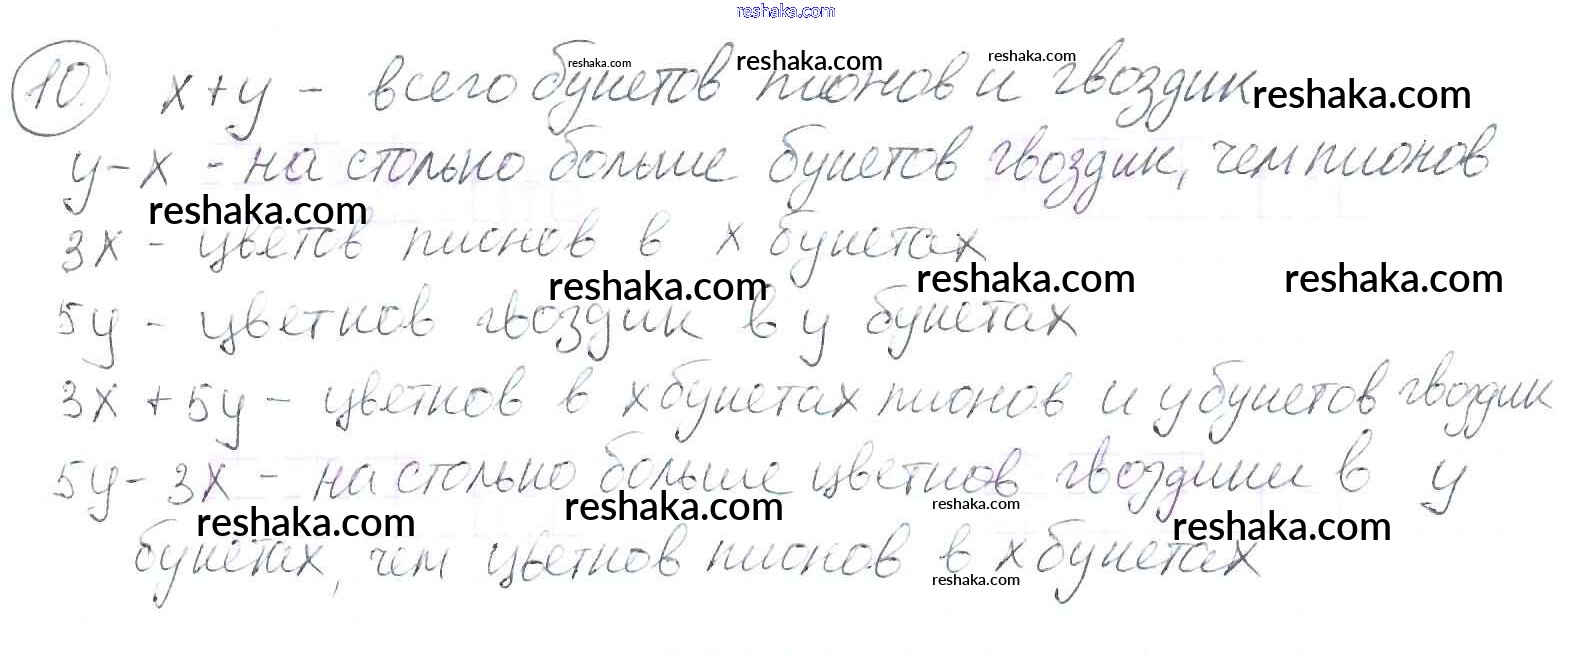 reshaka.com
10. x+y - всего букетов пионов и гвоздик
reshaka.com reshaka.com reshaka.com reshaka.com
y-x - на столько больше букетов гвоздик, чем пионов
reshaka.com
3x - цветов пионов в x букетах
reshaka.com reshaka.com reshaka.com
5y - цветков гвоздик в y букетах
3x + 5y - цветков в x букетах пионов и y букетов гвоздик
5y - 3x - на столько больше цветков гвоздики в y
reshaka.com reshaka.com reshaka.com reshaka.com
букетах, чем цветков пионов в x букетах
reshaka.com